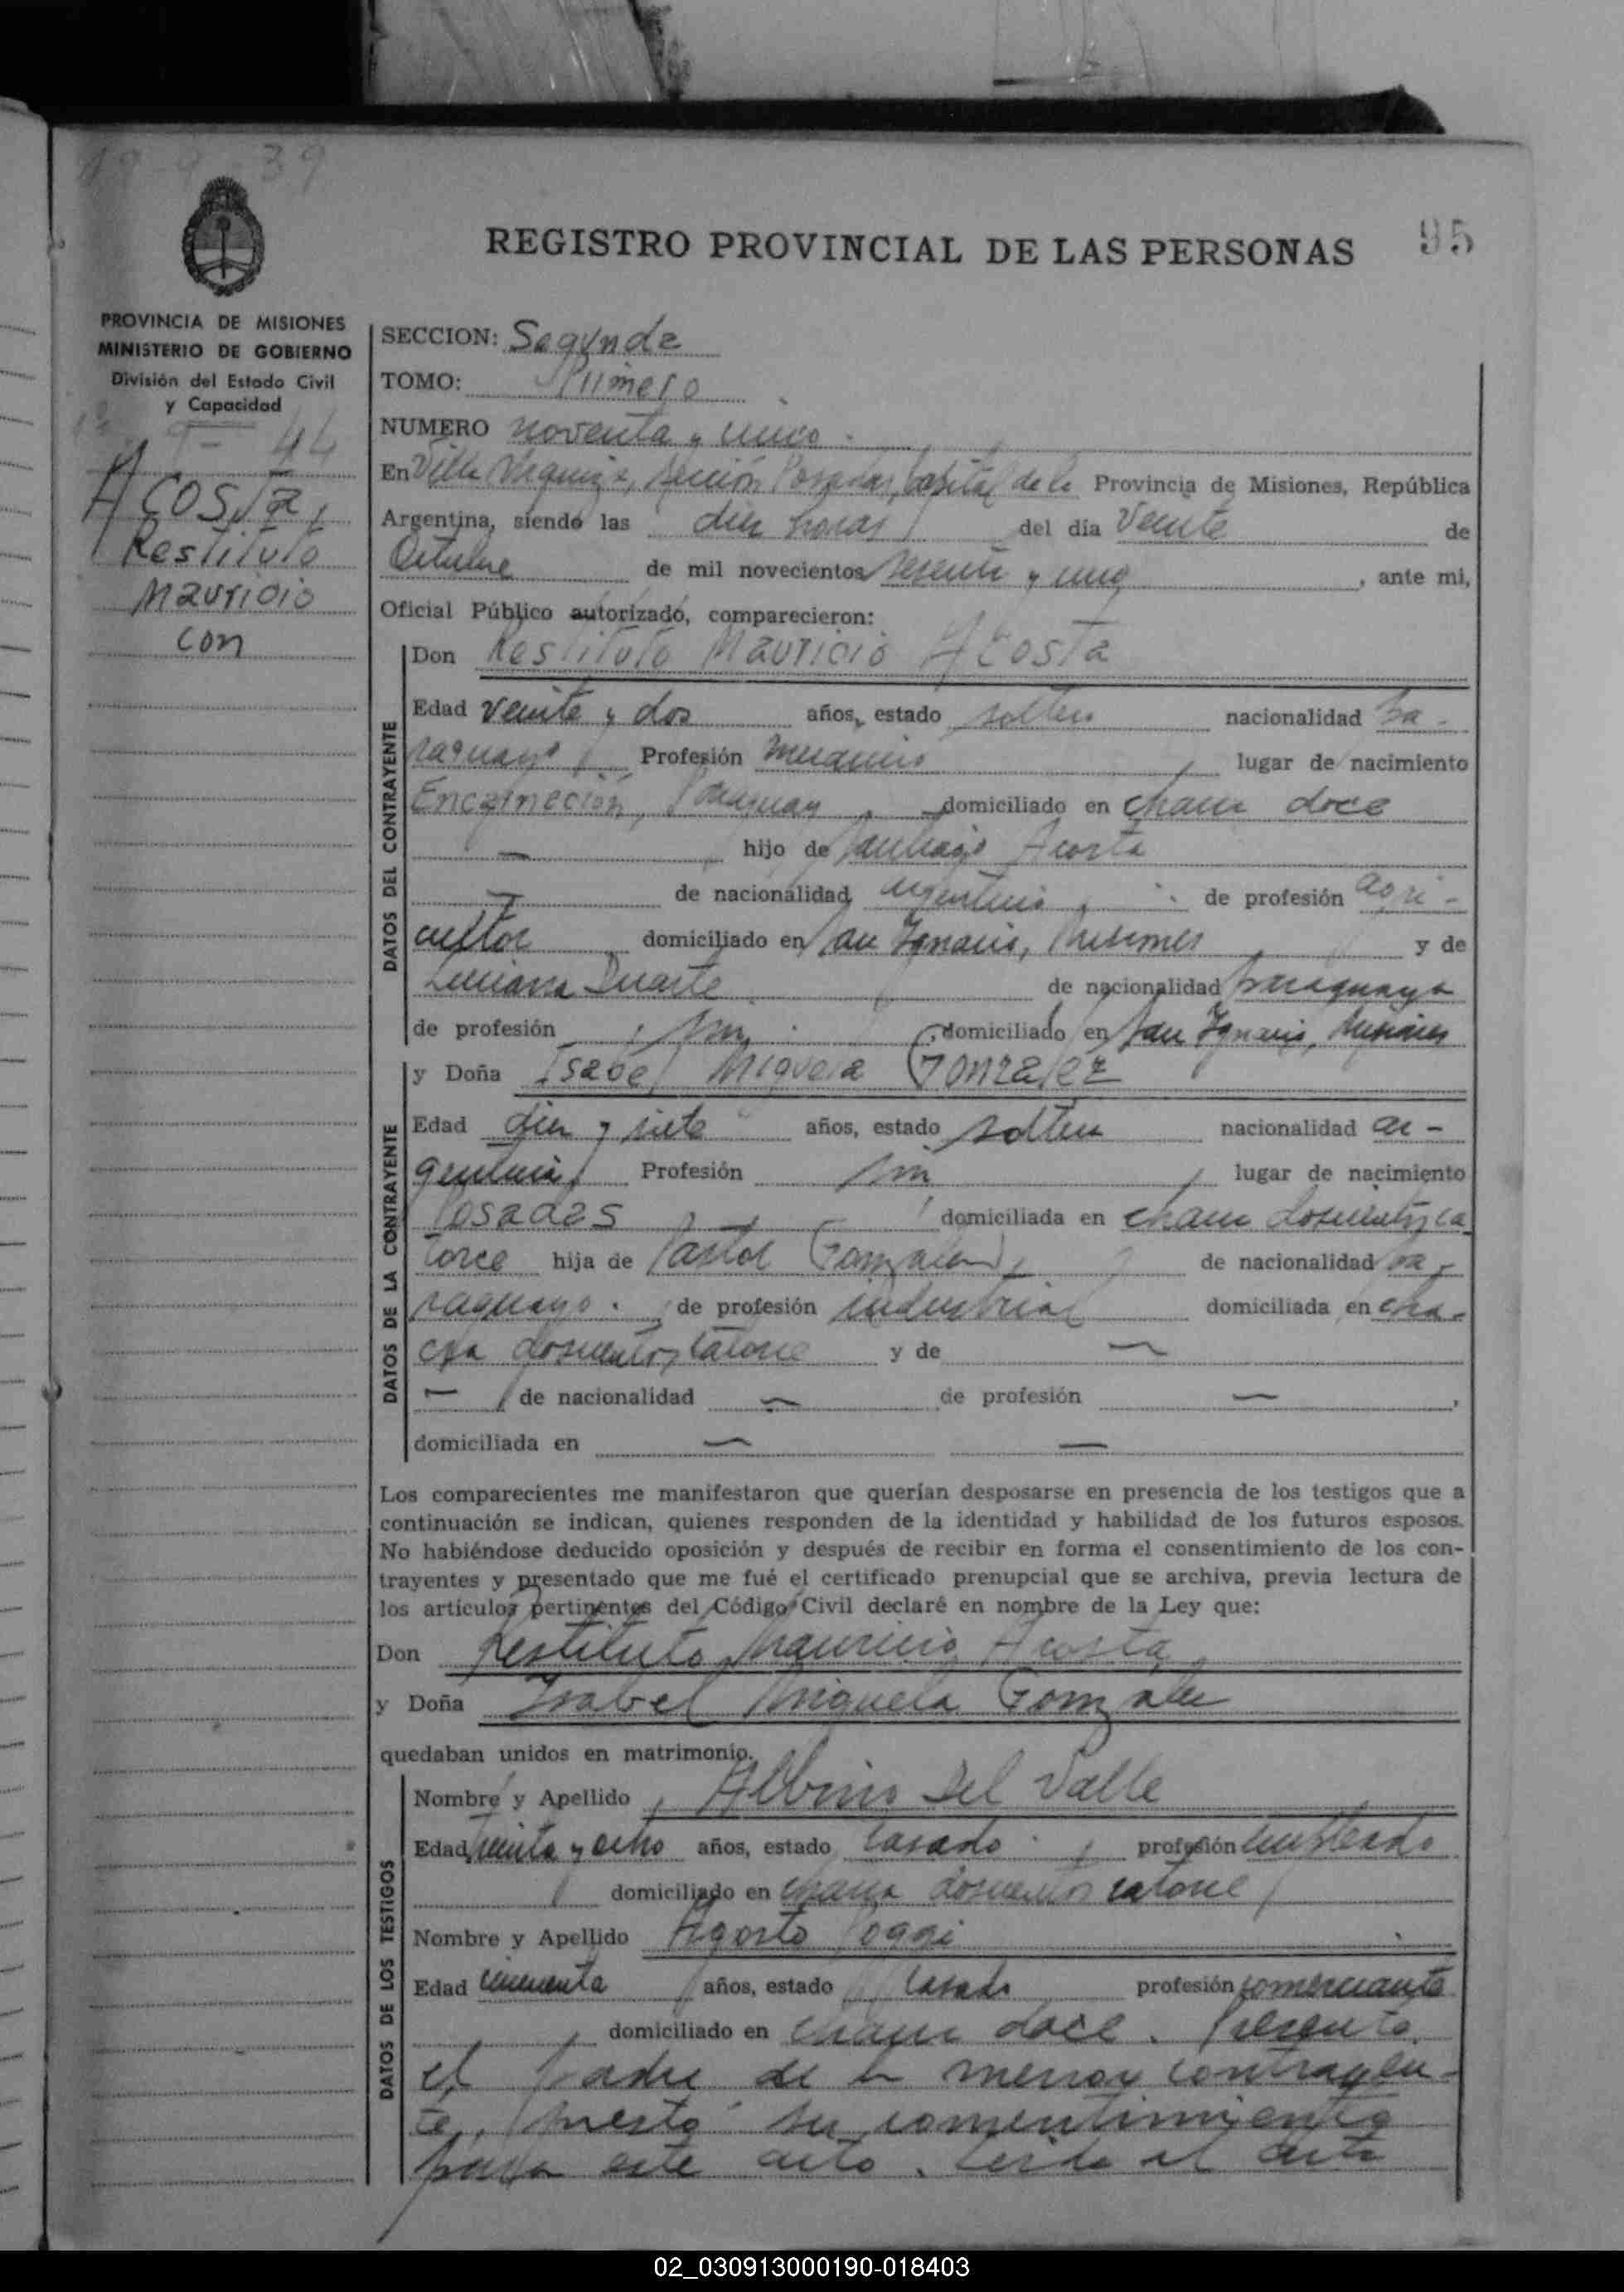 39
REGISTRO PROVINCIAL DE LAS PERSONAS
95
PROVINCIA DE MISIONES
MINISTERIO DE GOBIERNO
División del Estado Civil
y Capacidad
9 - 44
ACOSTA,
Restituto
Mauricio
con
SECCION: Segunda
TOMO: Primero
NUMERO noventa y uno.
En Villa Urquiza, Sección Posadas, Capital de la Provincia de Misiones, República
Argentina, siendo las diez horas del día veinte de
Octubre de mil novecientos sesenta y uno, ante mi,
Oficial Público autorizado, comparecieron:
DATOS DEL CONTRAYENTE
Don Restituto Mauricio Acosta
Edad veinte y dos años, estado soltero nacionalidad pa-
raguayo, Profesión mecánico, lugar de nacimiento
Encarnación, Paraguay, domiciliado en chacra doce
— hijo de Santiago Acosta
— de nacionalidad argentino, de profesión agri-
cultor domiciliado en San Ignacio, Misiones y de
Luciana Duarte de nacionalidad paraguaya
de profesión, sin, domiciliado en San Ignacio, Misiones
DATOS DE LA CONTRAYENTE
y Doña Isabel Miguela Gonzalez
Edad diez y siete años, estado soltera nacionalidad ar-
gentina, Profesión sin, lugar de nacimiento
Posadas, domiciliada en chacra doscientos ca
torce hija de Pastor Gonzalez, de nacionalidad pa-
raguayo, de profesión industrial domiciliada en cha-
cra doscientos catorce y de —
— de nacionalidad — de profesión —,
domiciliada en — —
Los comparecientes me manifestaron que querían desposarse en presencia de los testigos que a
continuación se indican, quienes responden de la identidad y habilidad de los futuros esposos.
No habiéndose deducido oposición y después de recibir en forma el consentimiento de los con-
trayentes y presentado que me fué el certificado prenupcial que se archiva, previa lectura de
los artículos pertinentes del Código Civil declaré en nombre de la Ley que:
Don Restituto Mauricio Acosta
y Doña Isabel Miguela Gonzalez
quedaban unidos en matrimonio.
DATOS DE LOS TESTIGOS
Nombre y Apellido Albino Del Valle
Edad treinta y ocho años, estado casado, profesión empleado
domiciliado en chacra doscientos catorce
Nombre y Apellido Agosto Poggi
Edad cincuenta años, estado casado profesión comerciante
, domiciliado en chacra doce. Presente
el padre de la menor contrayen-
te, prestó su consentimiento
para este acto. Leida el acta
02_030913000190-018403